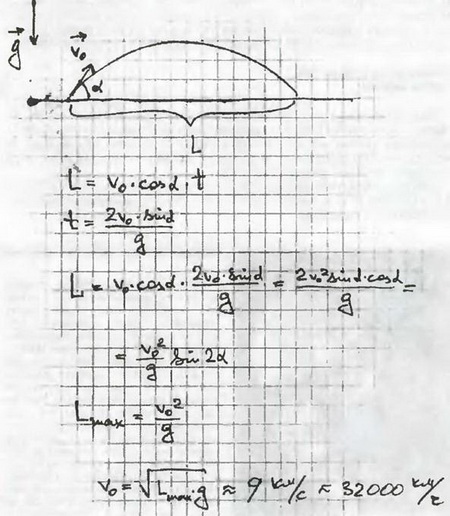 g⃗
v⃗₀
α
L
L = v₀·cosα·t
t = 2v₀·sinα/g
L = v₀·cosα·2v₀·sinα/g = 2v₀²sinα·cosα/g =
= v₀²/g sin2α
Lmax = v₀²/g
v₀ = √(Lmax·g) ≈ 9 км/с ≈ 32000 км/г